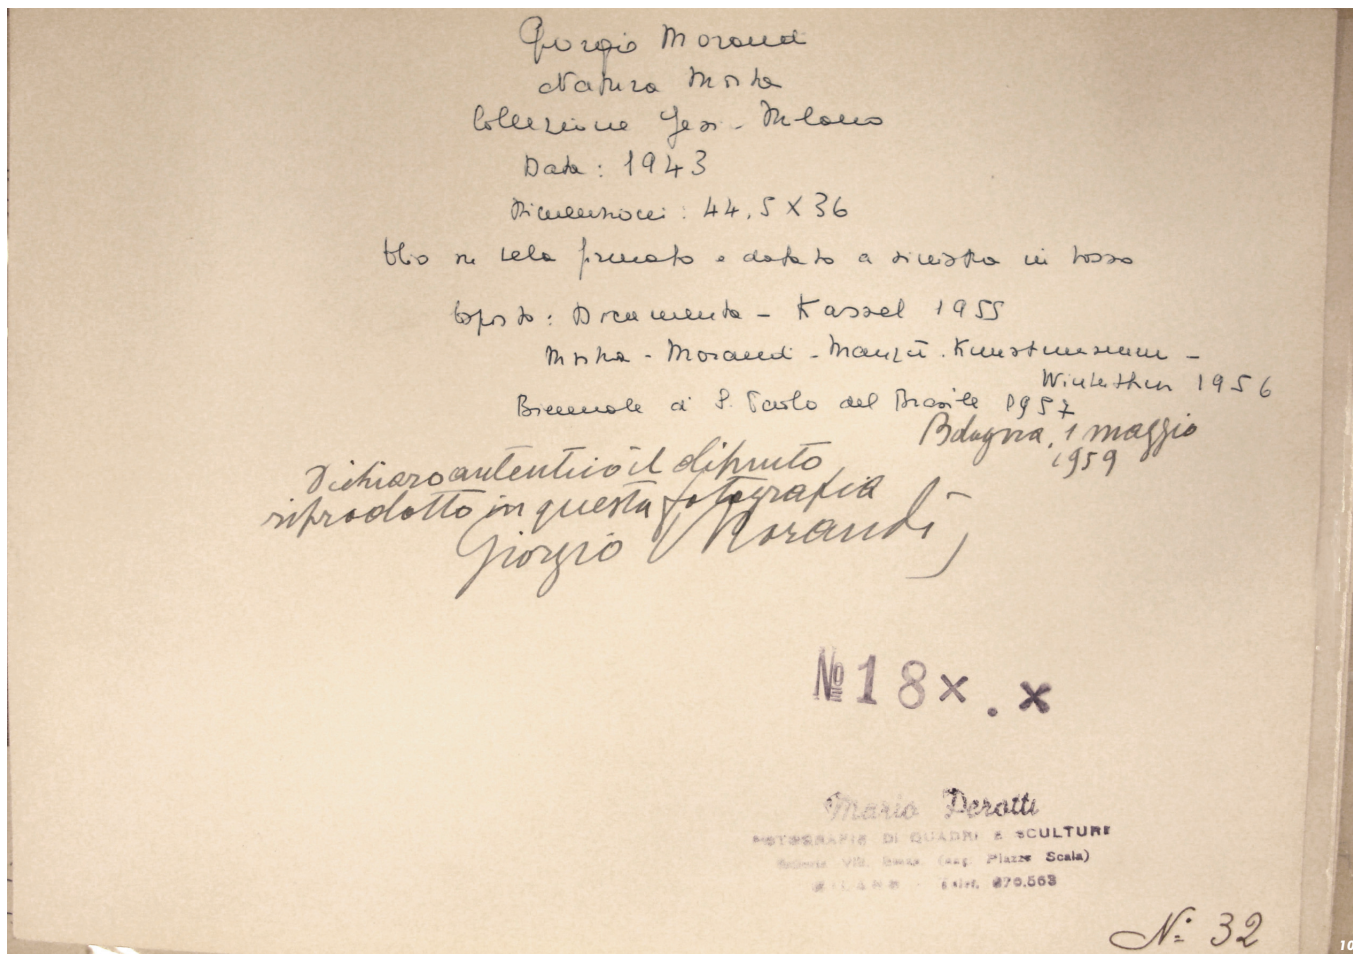 Giorgio Morandi
Natura Morta
Collezione Jesi - Milano
Data: 1943
Dimensioni: 44,5 X 36
Olio su tela firmato e datato a sinistra in basso
Esposto: Documenta - Kassel 1955
Marino - Morandi - Manzù. Kunstmuseum -
Winterthur 1956
Biennale di S. Paolo del Brasile 1957
Bologna, 1 maggio
1959
Dichiaro autentico il dipinto
riprodotto in questa fotografia
Giorgio Morandi
№ 18×.×
Mario Perotti
FOTOGRAFIE DI QUADRI E SCULTURE
(ang. Piazza Scala)
MILANO Telef. 870.563
N. 32
10